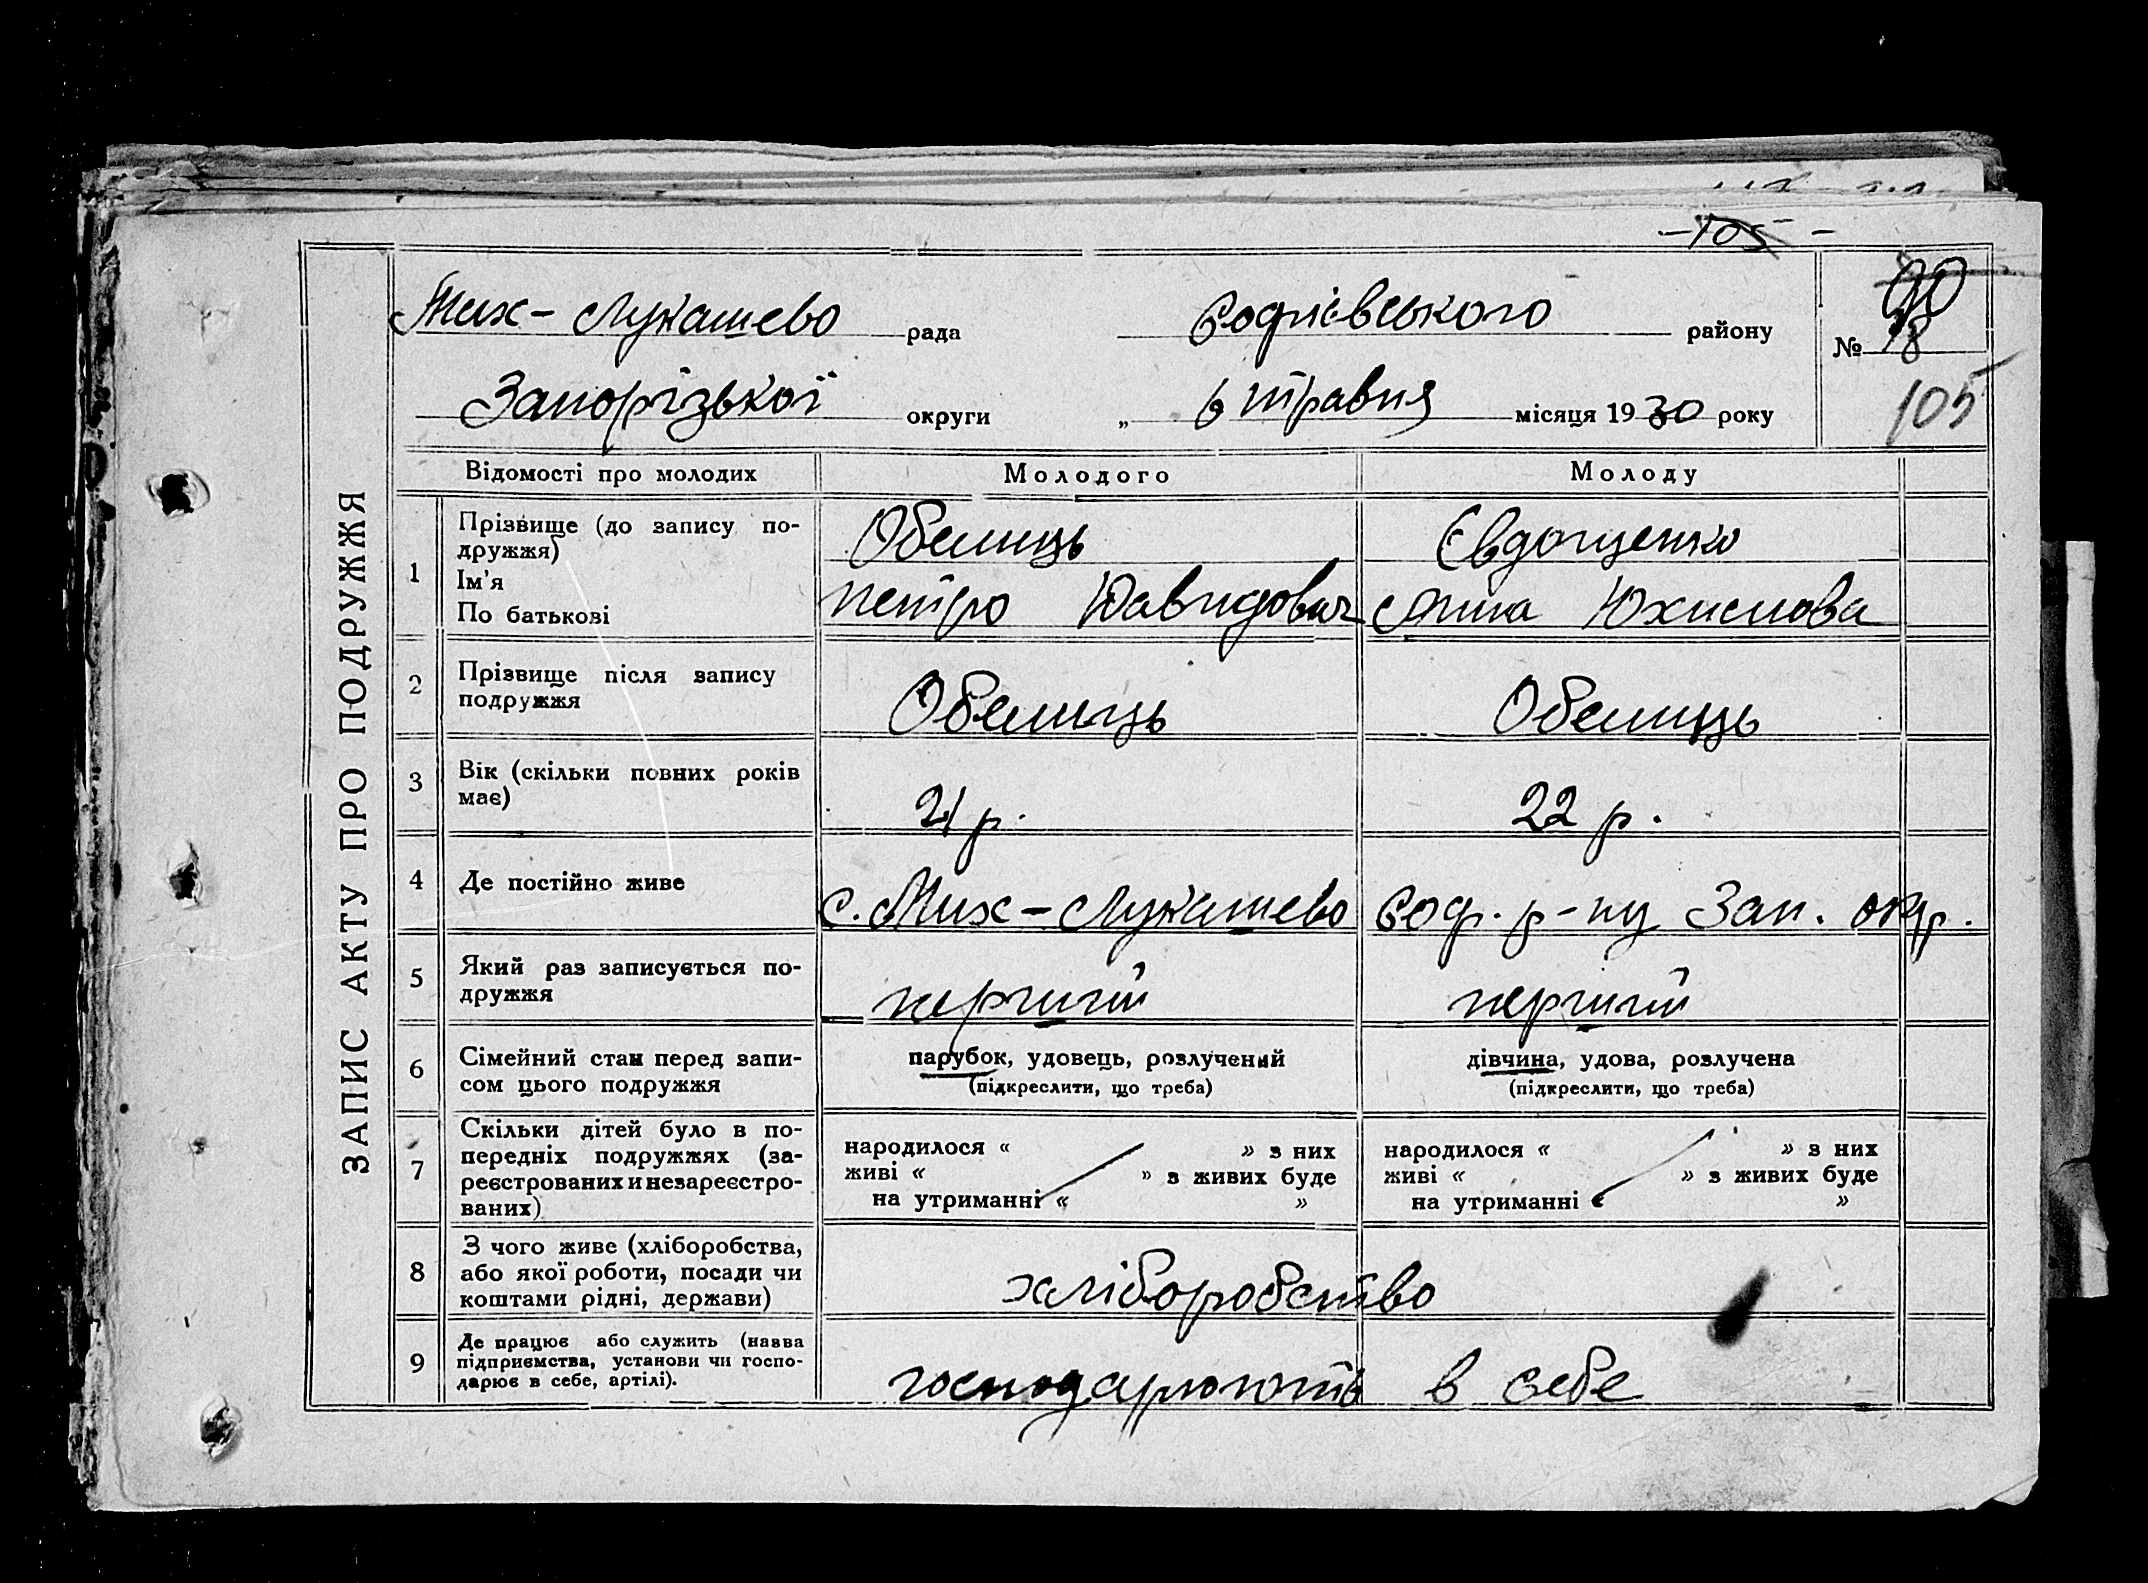 -105-
Мих-Лукашево рада Софіевського району
№ 18
90
Запорізької округи „ 6 травня місяця 1930 року
105
ЗАПИС АКТУ ПРО ПОДРУЖЖЯ
Відомості про молодих Молодого Молоду
1 Прізвище (до запису по-
дружжя) Обелиць Євдощенко
Ім'я
По батькові Петро Давидович Анна Юхимова
2 Прізвище після запису
подружжя Обелиць Обелиць
3 Вік (скільки повних років
має) 21 р. 22 р.
4 Де постійно живе с. Мих-Лукашево Соф. р-ну Зап. окр.
5 Який раз записується по-
дружжя перший перший
6 Сімейний стан перед запи-
сом цього подружжя
парубок, удовець, розлучений
(підкреслити, що треба)
дівчина, удова, розлучена
(підкреслити, що треба)
7 Скільки дітей було в по-
передніх подружжях (за-
реєстрованих и незареєстро-
ваних)
народилося « » з них
живі « » з живих буде
на утриманні « »
народилося « » з них
живі « » з живих буде
на утриманні « »
8 З чого живе (хліборобства,
або якої роботи, посади чи
коштами рідні, держави)
хліборобство
9 Де працює або служить (назва
підприємства, установи чи госпо-
дарює в себе, артілі).
господарюють в себе